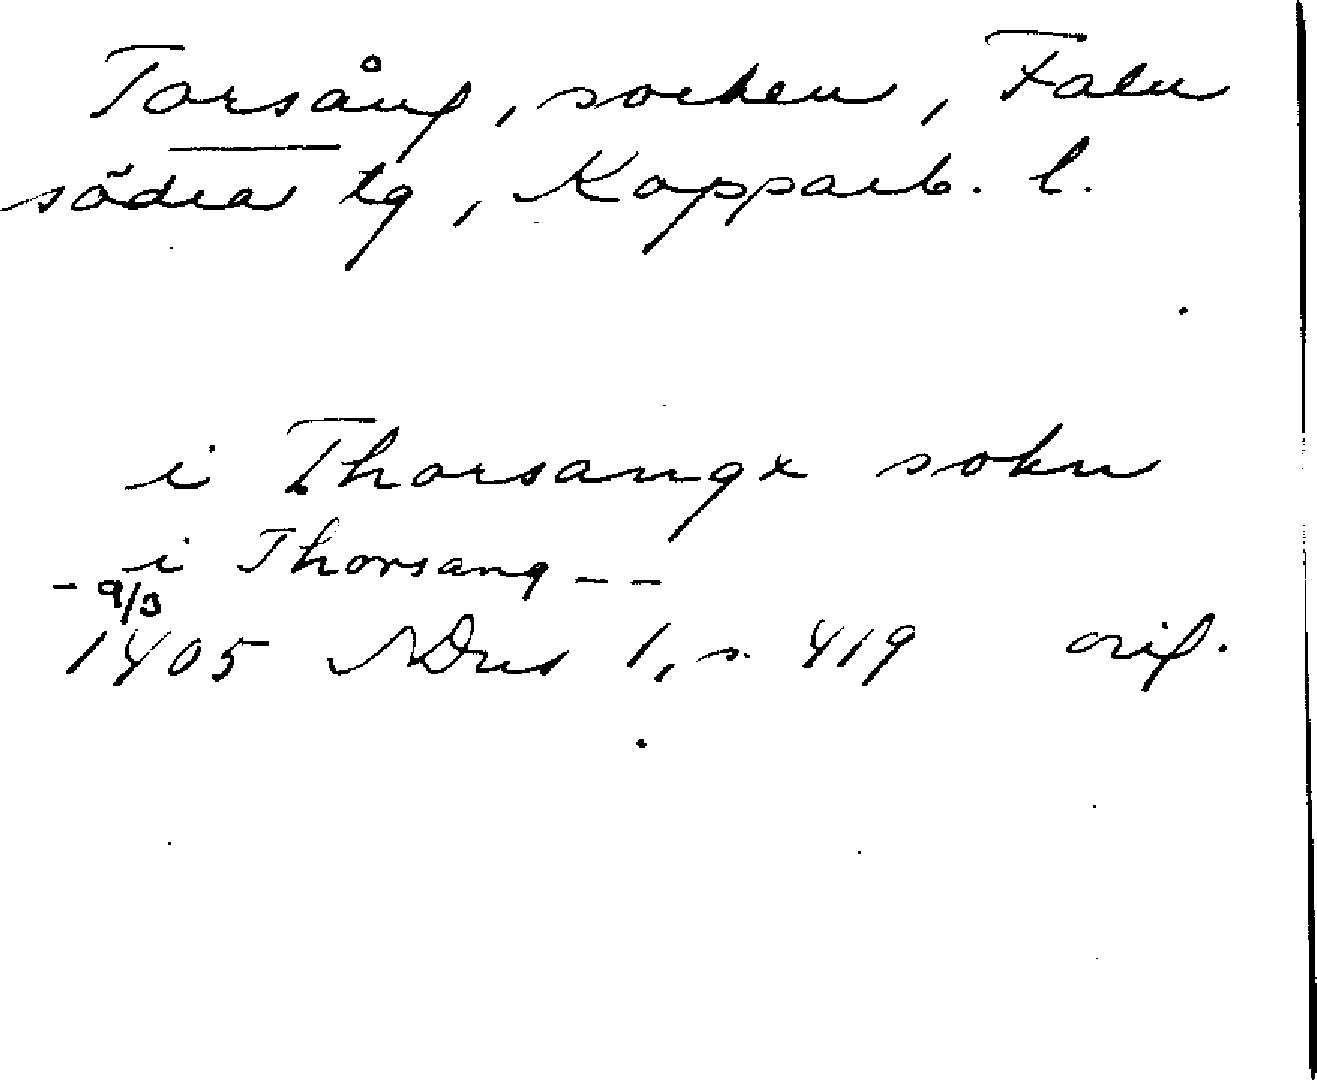 Torsång, socken, Falu
södra tg, Kopparb. l.
i Thorsangx sokn
i Thorsang - -
- 9/3
1405 NDns 1, s. 419 orig.